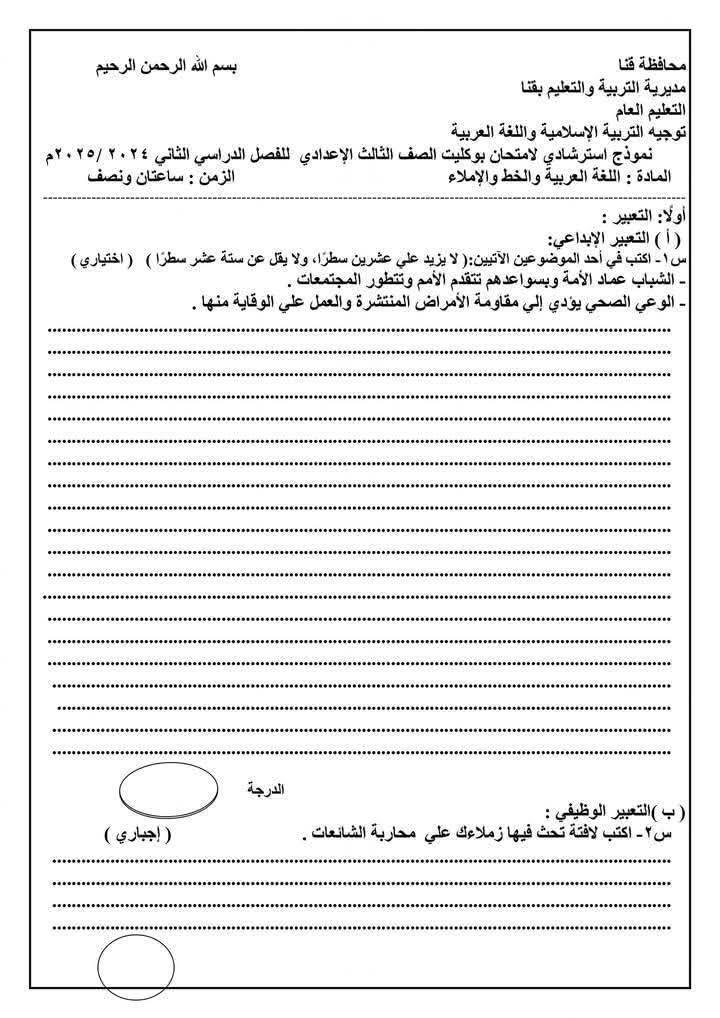 محافظة قنا بسم الله الرحمن الرحيم
مديرية التربية والتعليم بقنا
التعليم العام
توجيه التربية الإسلامية واللغة العربية
نموذج استرشادي لامتحان بوكليت الصف الثالث الإعدادي للفصل الدراسي الثاني ٢٠٢٤ /٢٠٢٥م
المادة : اللغة العربية والخط والإملاء الزمن : ساعتان ونصف
أولًا: التعبير :
( أ ) التعبير الإبداعي:
س١- اكتب في أحد الموضوعين الآتيين:( لا يزيد علي عشرين سطرًا، ولا يقل عن ستة عشر سطرًا ) ( اختياري )
- الشباب عماد الأمة وبسواعدهم تتقدم الأمم وتتطور المجتمعات .
- الوعي الصحي يؤدي إلي مقاومة الأمراض المنتشرة والعمل علي الوقاية منها .
الدرجة
( ب )التعبير الوظيفي :
س٢- اكتب لافتة تحث فيها زملاءك علي محاربة الشائعات . ( إجباري )